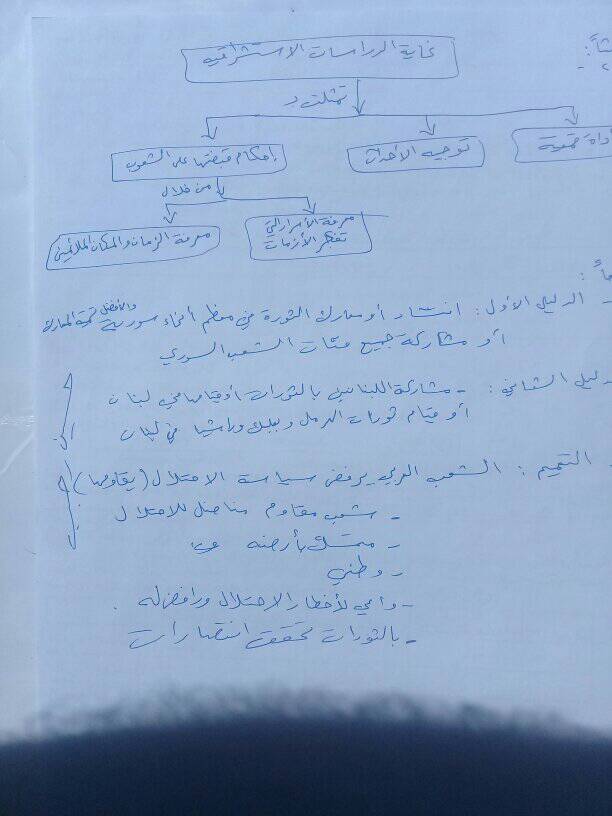 ثاً:
٢ -
غاية الدراسات الاستشراقية
تمثلت بـ
إحكام قبضتها على الشعوب
توجيه الأحداث
أداة قمعية
من خلال
معرفة الزمان والمكان الملائمين
معرفة الأسرار التي
تفجر الأزمات
عاً:
- الدليل الأول: انتشار أو معارك الثورة في معظم أنحاء سورية والأفضل تسمية المعارك
أو مشاركة جميع فئات الشعب السوري
دليل الثاني: - مشاركة اللبنانيين بالثورات أو قيامها في لبنان
أو قيام ثورات الهرمل وبعلبك وراشيا في لبنان
- التعميم: الشعب العربي يرفض سياسة الاحتلال (يقاومها)
- شعب مقاوم مناضل للاحتلال
- متمسك بأرضه
- وطني
- واعي لأخطار الاحتلال ورافض له.
- بالثورات تحقق انتصارات